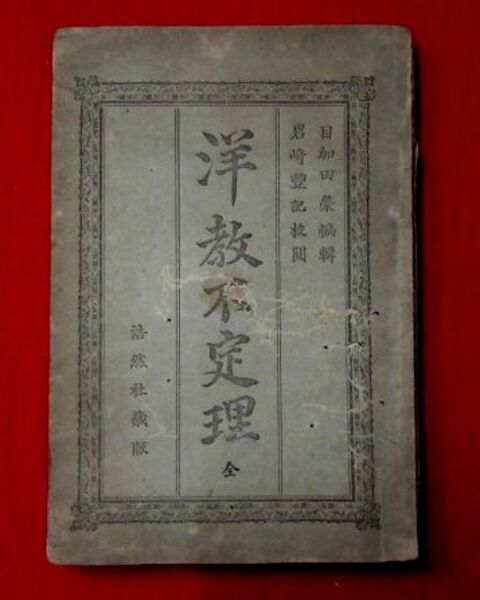 目加田榮編輯
岩崎豐記校閲
洋教不定理 全
浩然社藏版